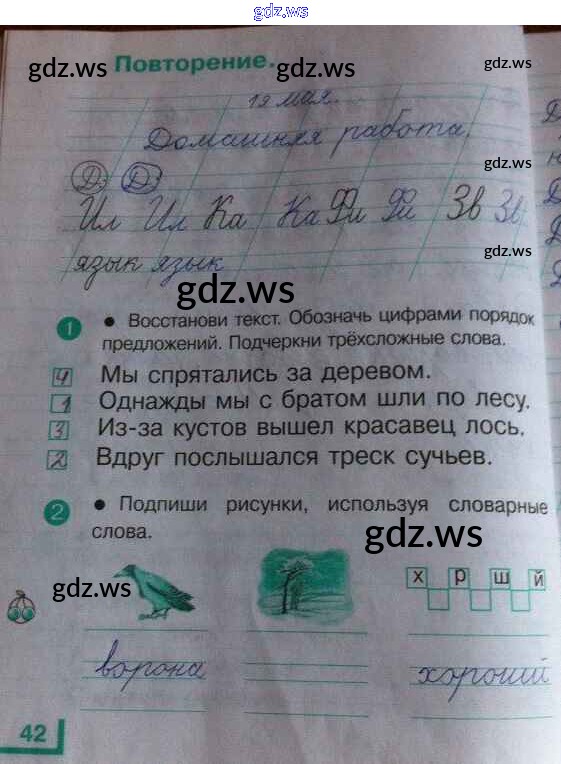 gdz.ws
gdz.ws Повторение. gdz.ws gdz.ws
19 мая.
Домашняя работа.
gdz.ws
Д: Д:
Ил Ил Ка Ка Фи Фи Зв Зв
gdz.ws
язык язык
gdz.ws
1 • Восстанови текст. Обозначь цифрами порядок
предложений. Подчеркни трёхсложные слова.
4 Мы спрятались за деревом.
1 Однажды мы с братом шли по лесу.
3 Из-за кустов вышел красавец лось.
2 Вдруг послышался треск сучьев.
2 • Подпиши рисунки, используя словарные
слова.
gdz.ws
gdz.ws
х р ш й
ворона хороший
42